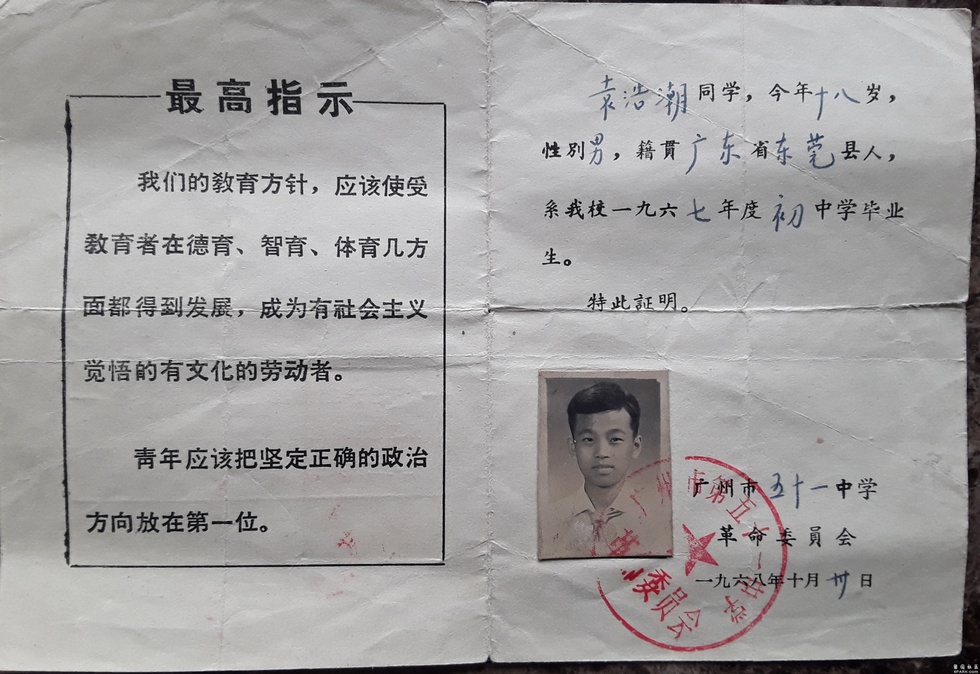 最高指示
我们的教育方针，应该使受
教育者在德育、智育、体育几方
面都得到发展，成为有社会主义
觉悟的有文化的劳动者。
青年应该把坚定正确的政治
方向放在第一位。
袁浩潮同学，今年十八岁，
性别男，籍贯广东省东莞县人，
系我校一九六七年度初中学毕业
生。
特此証明。
广州市五十一中学
革命委員会
一九六八年十月卅日
广州市第五十一中学
革命委员会